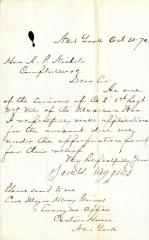 New York Oct 20 - 79.
Hon. A. P. Nichols
Comptroller
Dear Sir
As one
of the survivors of Co I 1st Regt
N.Y. Vols of the Mexican War
I respectfully make application
for the amount due me
under the appropriation passed
for their relief
Very Respectfully Yours
Please send to me
Care Major Henry
Surveyors Office
Custom House
New York